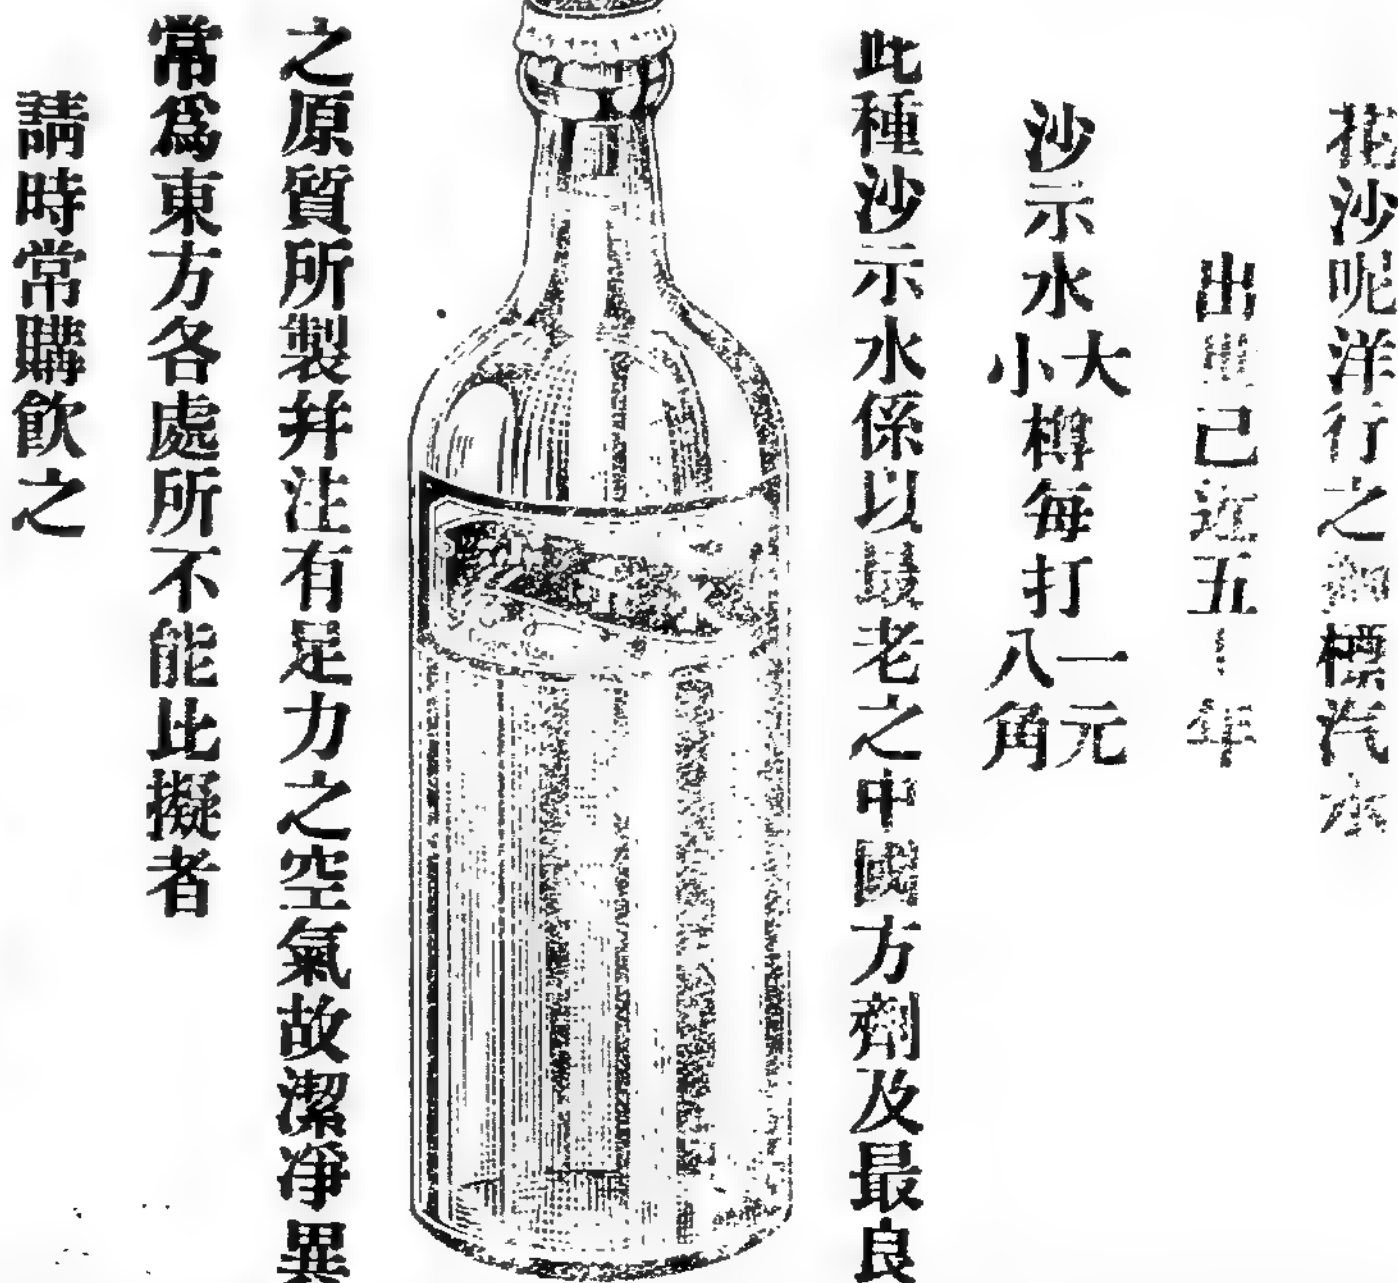 花沙呢洋行之獅標汽水
出世已近五十年
沙示水大小樽每打一元八角
此種沙示水係以最老之中國方劑及最良
之原質所製并注有足力之空氣故潔净異
常為東方各處所不能比擬者
請時常購飲之